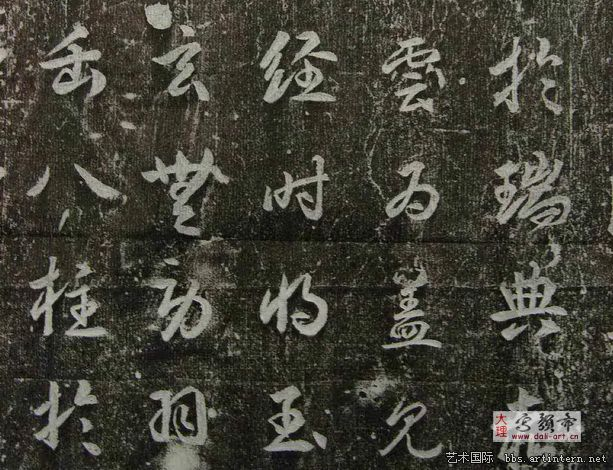 於瑞典
雲為蓋見
經時將玉
玄無羽
岳八柱於
大理
www.dali-art.cn
艺术国际 bbs.artintern.net